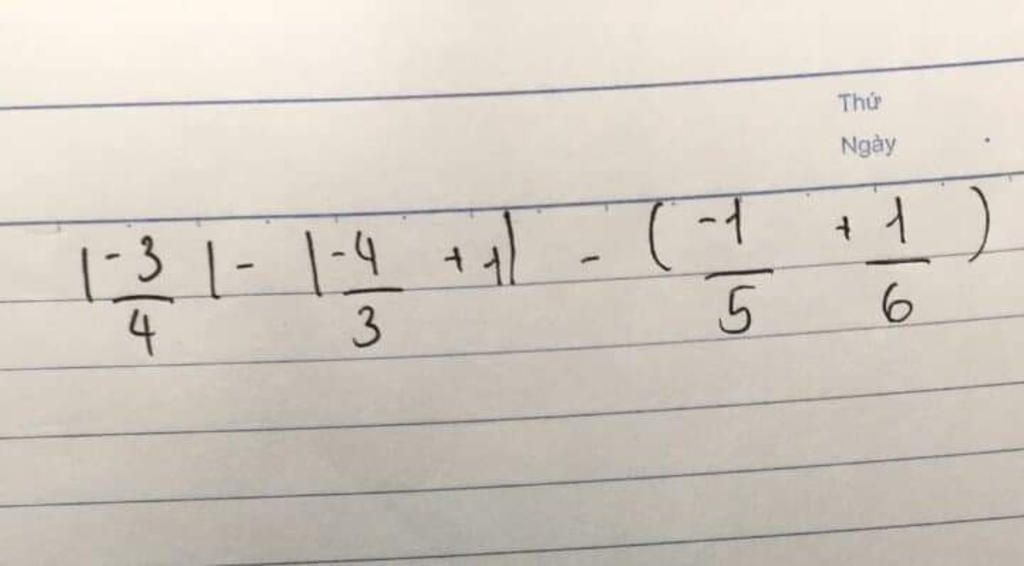 Thứ
Ngày
|-3/4| - |-4/3 + 1| - (-1/5 + 1/6)